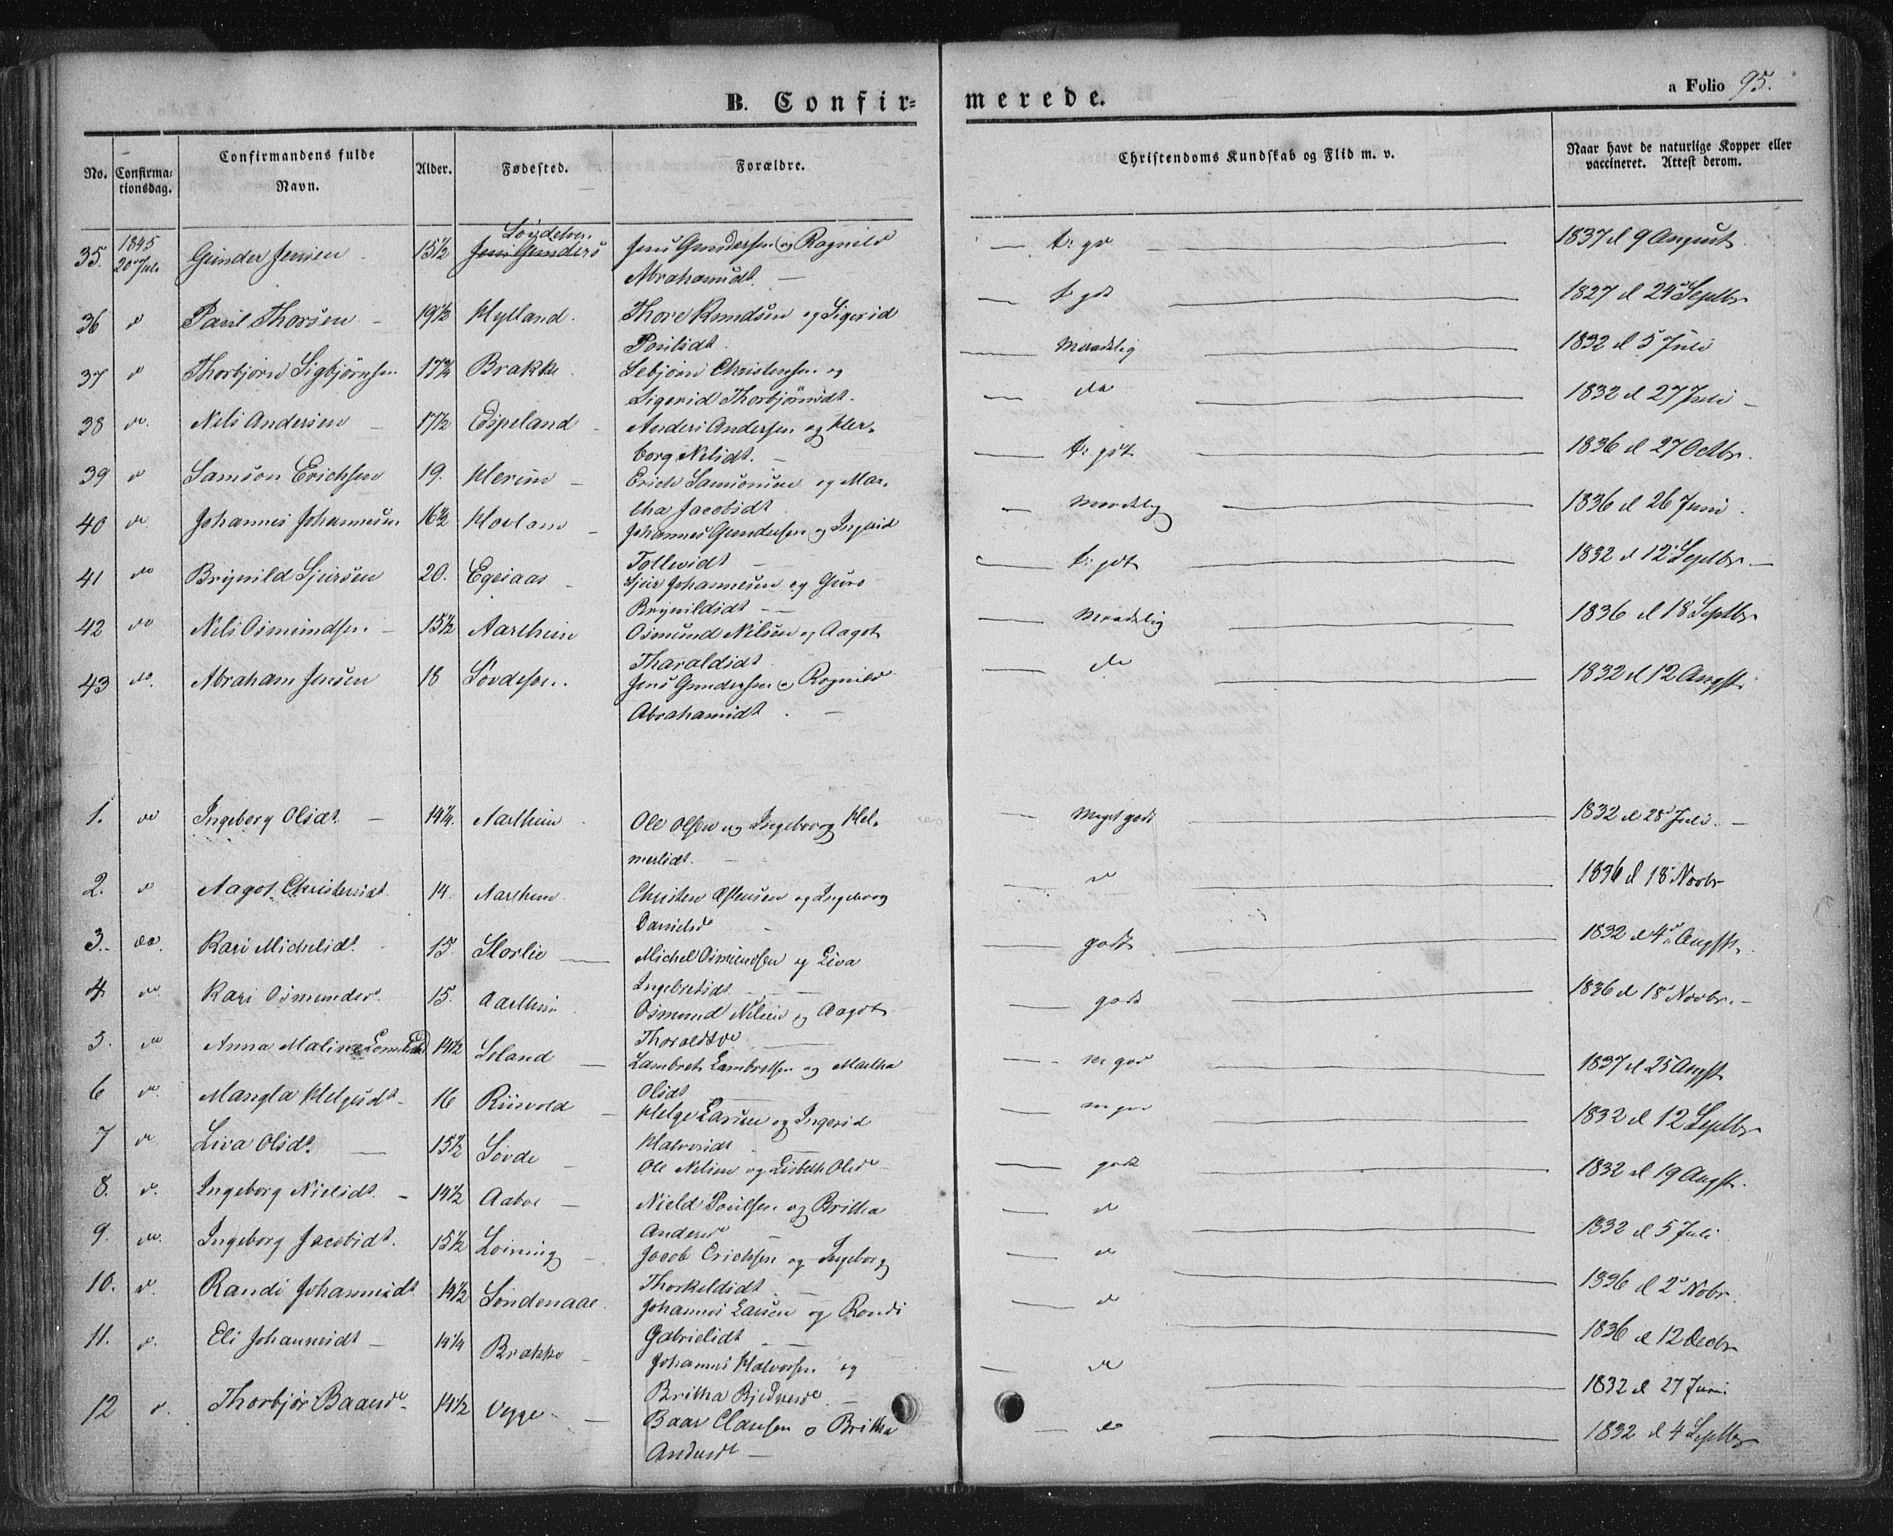 B. Confirmerede.
a Folio 95.
No. Confirmationsdag. Confirmandens fulde Navn. Alder. Fødested. Forældre. Christendoms Kundskab og Flid m. v. Naar havt de naturlige Kopper eller vaccineret. Attest derom.
35. 1845 20 Juli Gunder Jensen 15½ Jens Gunders Jens Gundersen og Ragnild 1837 d 9 August
Abrahamsdt.
36 d Poul Thorsen 19½ Hylland. Thore Knudsen og Sigerid 1827 d 24 Septbr
Poulsdt.
37 d Thorbjørn Sigbjørnsen 17¾ Brakke Sebjørn Christensen og Maadelig 1832 d 5 Juli
Sigerid Thorbjørnsdt.
38 do. Nils Andersen 17½ Espeland Anders Andersen og Her- do 1832 d 27 Juli
borg Nilsdt.
39 d Samson Erichsen 19. Herim Erich Samsonsen og Mar- t: gdt 1836 d 27 Octbr.
tha Jacobsdt
40 do Johannes Johannesen 16½ Hoeland Johannes Gundersen og Ingerid Maadelig 1836 d 26 Juni
Tollevsdt
41 do Brynild Sjursen 20. Egeiaas Sjur Johannesen og Guro t: gdt 1832 d 12 Septbr.
Brynildsdt
42 do Nils Osmundsen 15½ Aartheim Osmund Nilsen og Aagot Maadelig 1836 d 18 Septbr
Tharaldsdt
43 do. Abraham Jensen 18 Jens Gundersen og Ragnild do 1832 d 12 Augst.
Abrahamsdt
1. do Ingeborg Olsdt. 14¼. Aartheim Ole Olsen og Ingeborg Hel- Meget godt 1832 d 28 Juli.
merlsdt.
2. d Aagot Christensdt. 14. Aartheim Christen Østensen og Ingeborg d 1836 d 18 Novbr
Danielsd
3. do. Kari Michelsdt. 15. Storlie Michel Osmundsen og Liva godt 1832 d 4 Augst.
Ingebretsdt
4. do Kari Osmundsd. 15. Aartheim Osmund Nilsen og Aagot godt 1836 d 18 Novbr.
Thoroldsd
5. do Anna Maline 14½ Soland Lambret Lambretsen og Martha m god 1837 d 25 Augst
Olsdt
6 d. Mangla Helgesdt. 16 Risvold Helge Larsen og Ingerid m god 1832 d 12 Septbr
Halvorsdt
7 d Liva Olsdt. 15½ Søvde Ole Nilsen og Lisbeth Olsd godt 1832 d 19 Augst.
8. d. Ingeborg Nielsdt. 14½ Aaboe Nield Poulsen og Britha d 1832 d 5 Juli
Andersd
9. do. Ingeborg Jacobsdt. 15½ Løining Jacob Erichsen og Ingeborg d 1836 d 2 Nobr.
Thorkeldsdt
10. d. Randi Johannesdt 14½ Søndenaae. Johannes Larsen og Randi d 1836 d 12 Decbr
Gabrielsdt
11. d. Eli Johannesdt 14¼ Brakke Johannes Halvorsen og d 1832 d 27 Juni
Britha
12 d. Thorbjør Baarsd 14½ Vegge Baar Clausen o Britha d 1832 d 4 Septbr
Andersdt